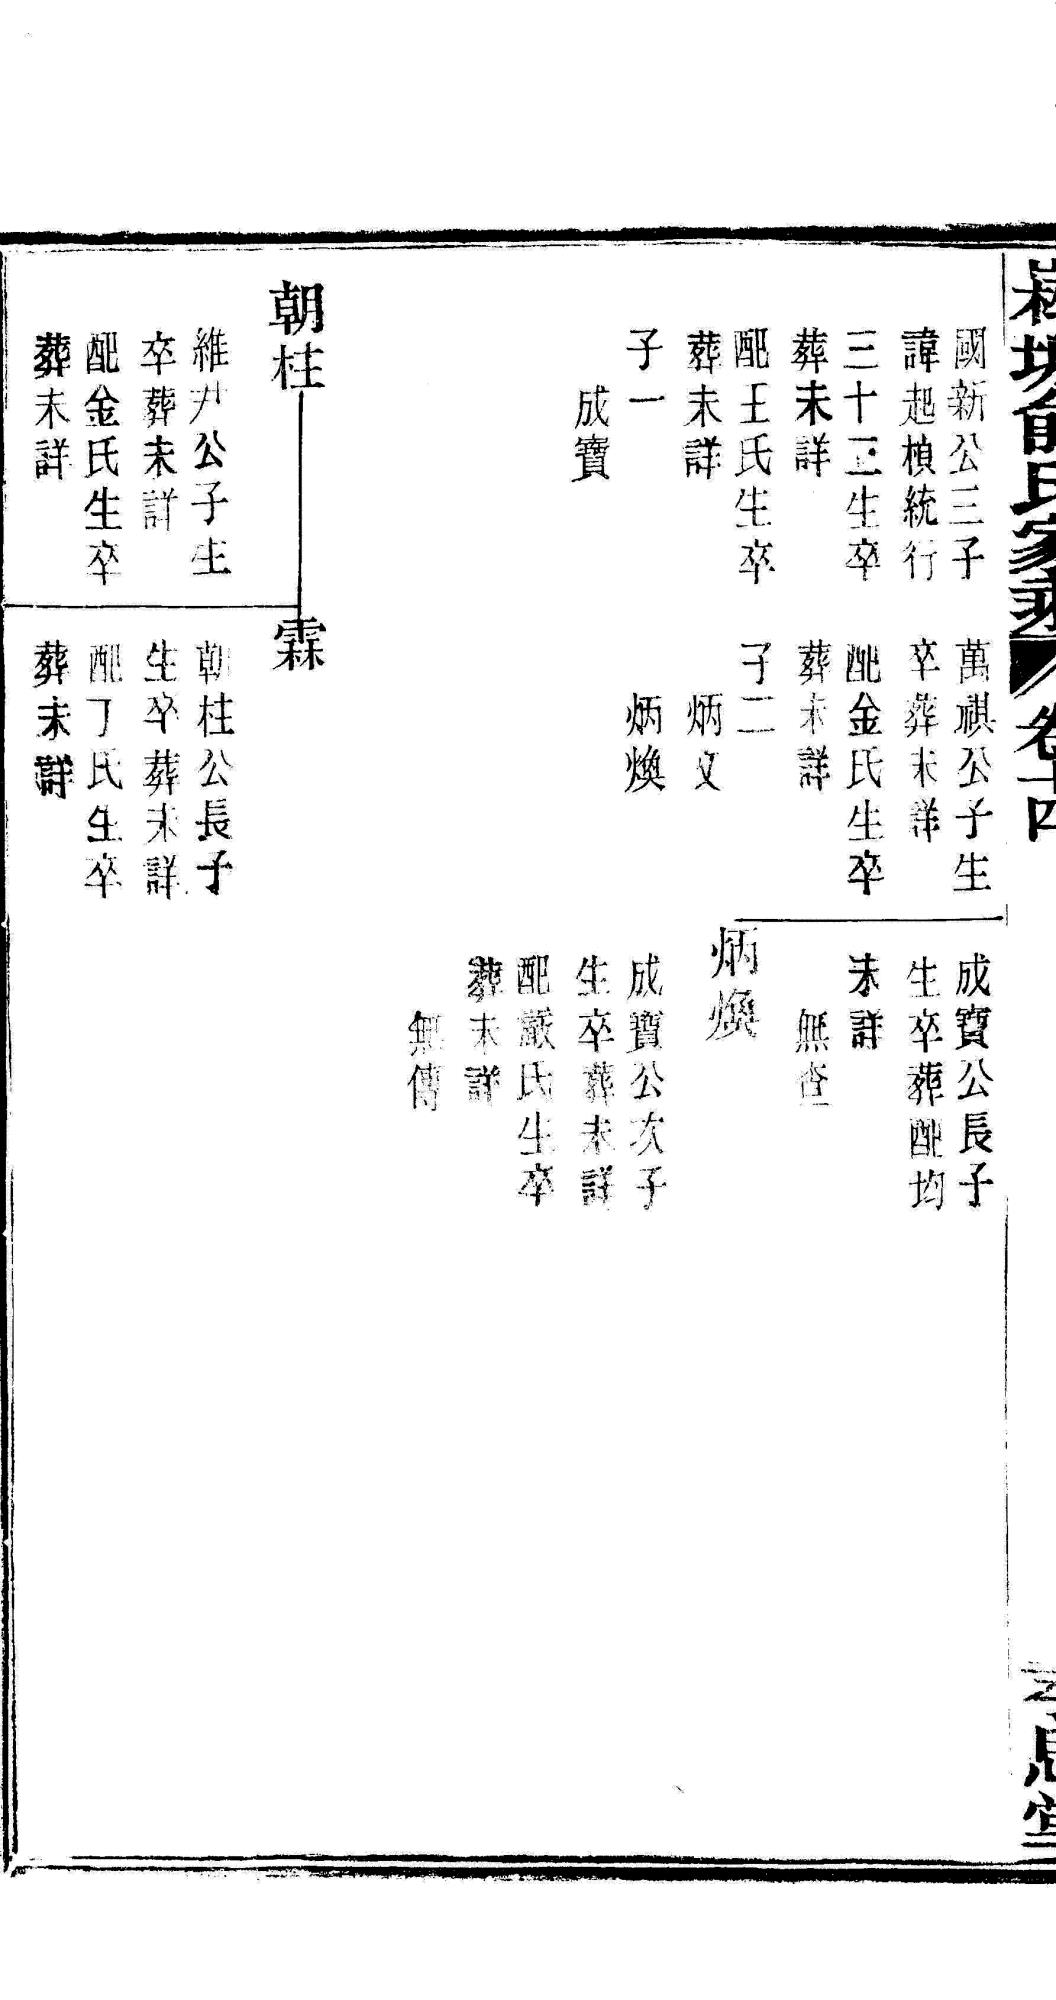 氏家乘 卷十四
思堂
國新公三子
諱起楨統行
三十五生卒
葬未詳
配王氏生卒
葬未詳
子一
成寶
萬祺公子生
卒葬未詳
配金氏生卒
葬未詳
子二
炳文
炳煥
成寶公長子
生卒葬配均
未詳
無查
炳煥
成寶公次子
生卒葬未詳
配嚴氏生卒
葬未詳
無傳
朝柱
維尹公子生
卒葬未詳
配金氏生卒
葬未詳
霖
朝柱公長子
生卒葬未詳
配丁氏生卒
葬未詳